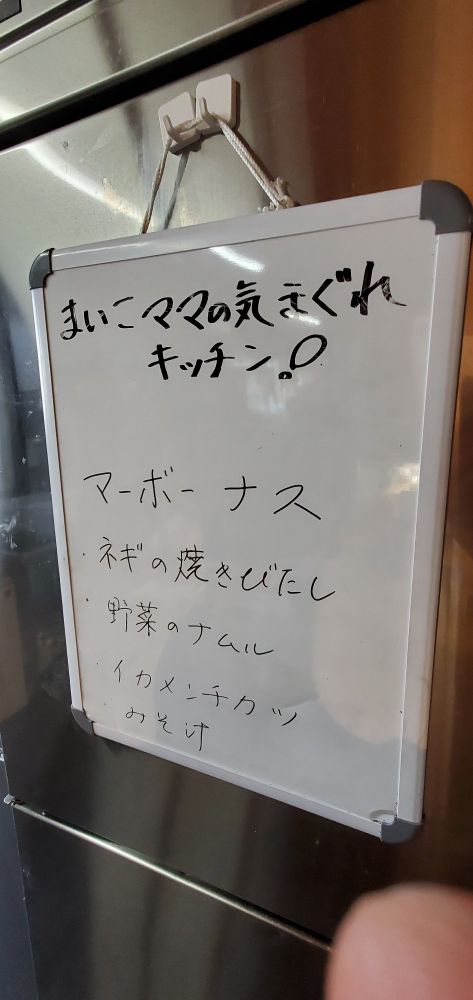 まいこママの気まぐれ
キッチン。
マーボーナス
・ネギの焼きびたし
・野菜のナムル
・イカメンチカツ
・みそ汁